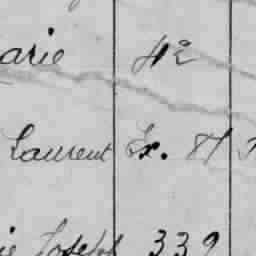 arie 42
Laurent Ex. 87
ie Joseph 339